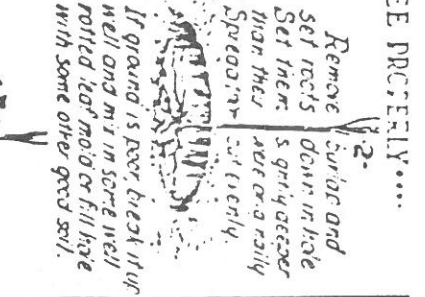 EE PROPERLY....
2-
Remove burlap and
set roots down in hole
Set them slightly deeper
than they were originally
Spread evenly.
If ground is poor, break it up
well and mix in some well
rotted leaf mold or fill hole
with some other good soil.